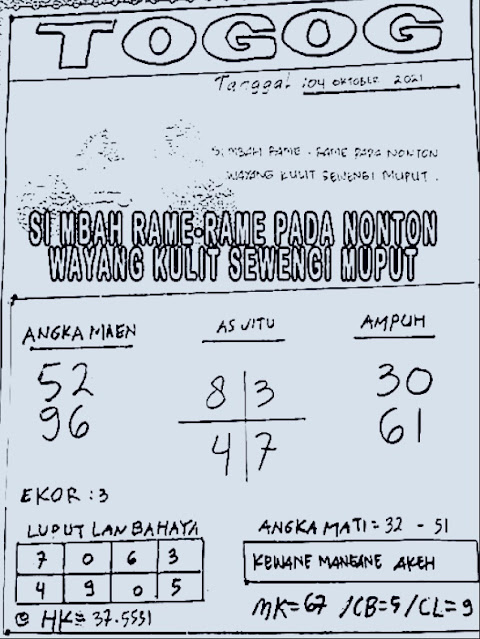 TOGOG
Tanggal : 04 OKTOBER 2021
SI MBAH RAME - RAME PADA NONTON
WAYANG KULIT SEWENGI MUPUT .
SI MBAH RAME-RAME PADA NONTON
WAYANG KULIT SEWENGI MUPUT
ANGKA MAEN
AS JITU
AMPUH
52
96
8 3
4 7
30
61
EKOR : 3
LUPUT LAN BAHAYA
7 0 6 3
4 9 0 5
HK = 37.5531
ANGKA MATI = 32 - 51
KEWANE MANGANE AKEH
MK=67 /CB=5/CL=9